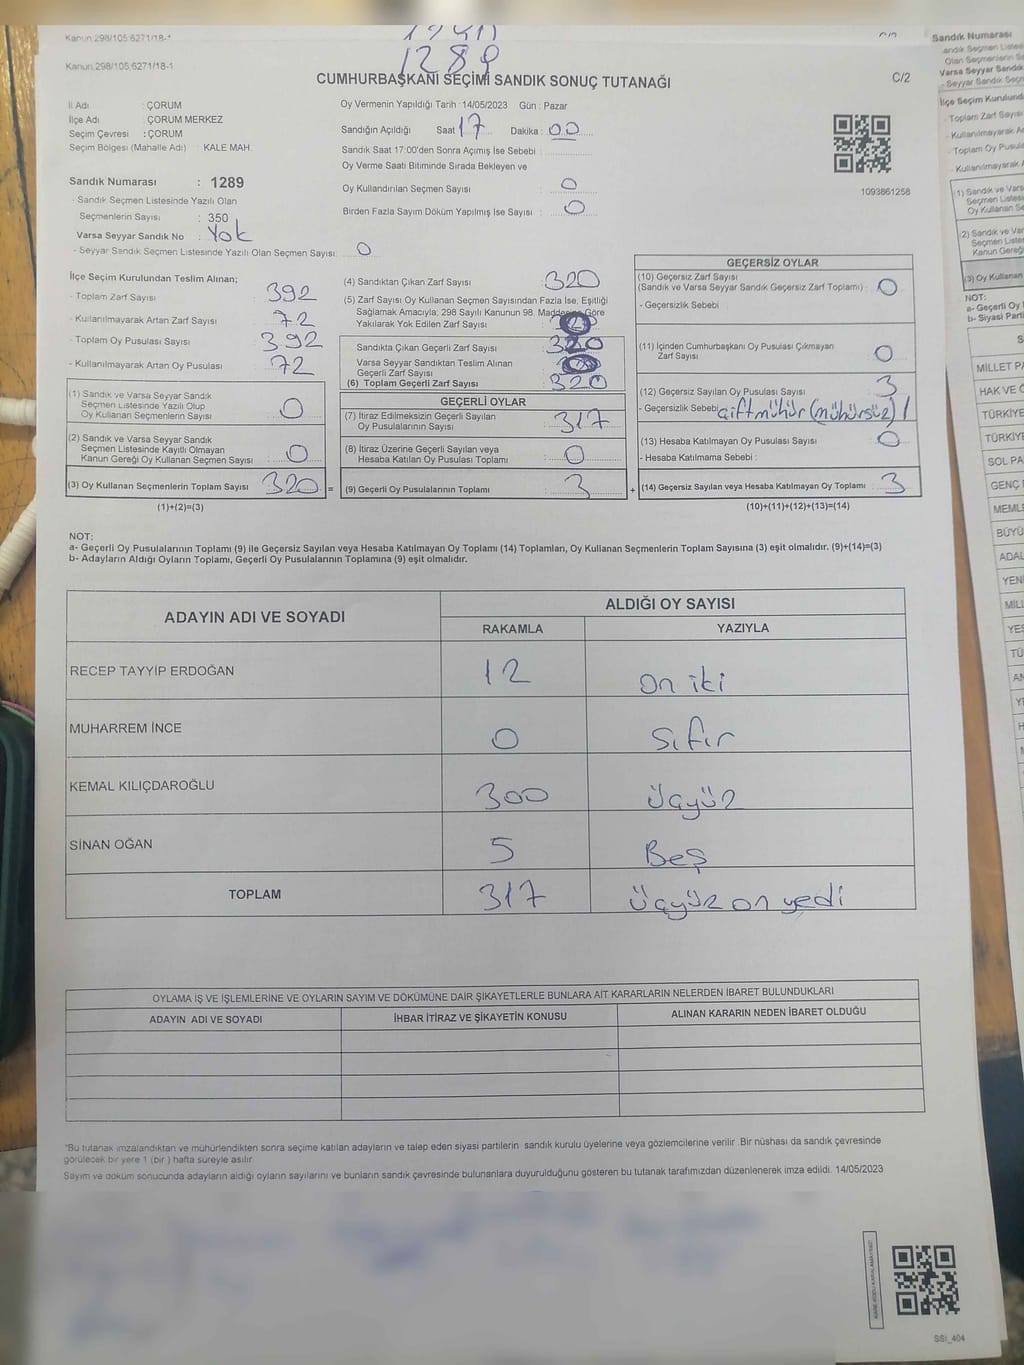 Kanun.298/105:6271/18-1
1289
Kanun.298/105:6271/18-1
CUMHURBAŞKANI SEÇİMİ SANDIK SONUÇ TUTANAĞI
C/2
İl Adı : ÇORUM
İlçe Adı : ÇORUM MERKEZ
Seçim Çevresi : ÇORUM
Seçim Bölgesi (Mahalle Adı) : KALE MAH.
Sandık Numarası : 1289
- Sandık Seçmen Listesinde Yazılı Olan
Seçmenlerin Sayısı : 350
Varsa Seyyar Sandık No : Yok
- Seyyar Sandık Seçmen Listesinde Yazılı Olan Seçmen Sayısı: 0
Oy Vermenin Yapıldığı Tarih : 14/05/2023 Gün : Pazar
Sandığın Açıldığı Saat 17 Dakika : 00
Sandık Saat 17:00'den Sonra Açımış İse Sebebi :
Oy Verme Saati Bitiminde Sırada Bekleyen ve
Oy Kullandırılan Seçmen Sayısı : 0
Birden Fazla Sayım Döküm Yapılmış İse Sayısı : 0
1093861258
İlçe Seçim Kurulundan Teslim Alınan;
- Toplam Zarf Sayısı : 392
- Kullanılmayarak Artan Zarf Sayısı : 72
- Toplam Oy Pusulası Sayısı : 392
- Kullanılmayarak Artan Oy Pusulası : 72
(1) Sandık ve Varsa Seyyar Sandık
Seçmen Listesinde Yazılı Olup
Oy Kullanan Seçmenlerin Sayısı : 0
(2) Sandık ve Varsa Seyyar Sandık
Seçmen Listesinde Kayıtlı Olmayan
Kanun Gereği Oy Kullanan Seçmen Sayısı : 0
(3) Oy Kullanan Seçmenlerin Toplam Sayısı : 320 =
(1)+(2)=(3)
(4) Sandıktan Çıkan Zarf Sayısı : 320
(5) Zarf Sayısı Oy Kullanan Seçmen Sayısından Fazla İse, Eşitliği
Sağlamak Amacıyla; 298 Sayılı Kanunun 98. Maddesine Göre
Yakılarak Yok Edilen Zarf Sayısı
Sandıkta Çıkan Geçerli Zarf Sayısı : 320
Varsa Seyyar Sandıktan Teslim Alınan
Geçerli Zarf Sayısı
(6) Toplam Geçerli Zarf Sayısı : 320
GEÇERLİ OYLAR
(7) İtiraz Edilmeksizin Geçerli Sayılan
Oy Pusulalarının Sayısı : 317
(8) İtiraz Üzerine Geçerli Sayılan veya
Hesaba Katılan Oy Pusulası Toplamı : 0
(9) Geçerli Oy Pusulalarının Toplamı : 3 +
GEÇERSİZ OYLAR
(10) Geçersiz Zarf Sayısı
(Sandık ve Varsa Seyyar Sandık Geçersiz Zarf Toplamı) : 0
- Geçersizlik Sebebi :
(11) İçinden Cumhurbaşkanı Oy Pusulası Çıkmayan
Zarf Sayısı : 0
(12) Geçersiz Sayılan Oy Pusulası Sayısı : 3
- Geçersizlik Sebebi çift mühür (mühürsüz) 1
(13) Hesaba Katılmayan Oy Pusulası Sayısı : 0
- Hesaba Katılmama Sebebi :
(14) Geçersiz Sayılan veya Hesaba Katılmayan Oy Toplamı : 3
(10)+(11)+(12)+(13)=(14)
NOT:
a- Geçerli Oy Pusulalarının Toplamı (9) ile Geçersiz Sayılan veya Hesaba Katılmayan Oy Toplamı (14) Toplamları, Oy Kullanan Seçmenlerin Toplam Sayısına (3) eşit olmalıdır. (9)+(14)=(3)
b- Adayların Aldığı Oyların Toplamı, Geçerli Oy Pusulalarının Toplamına (9) eşit olmalıdır.
ADAYIN ADI VE SOYADI
ALDIĞI OY SAYISI
RAKAMLA YAZIYLA
RECEP TAYYİP ERDOĞAN 12 on iki
MUHARREM İNCE 0 sıfır
KEMAL KILIÇDAROĞLU 300 üçyüz
SİNAN OĞAN 5 Beş
TOPLAM 317 üçyüz on yedi
OYLAMA İŞ VE İŞLEMLERİNE VE OYLARIN SAYIM VE DÖKÜMÜNE DAİR ŞİKAYETLERLE BUNLARA AİT KARARLARIN NELERDEN İBARET BULUNDUKLARI
ADAYIN ADI VE SOYADI İHBAR İTİRAZ VE ŞİKAYETİN KONUSU ALINAN KARARIN NEDEN İBARET OLDUĞU
*Bu tutanak imzalandıktan ve mühürlendikten sonra seçime katılan adayların ve talep eden siyasi partilerin sandık kurulu üyelerine veya gözlemcilerine verilir. Bir nüshası da sandık çevresinde
görülecek bir yere 1 (bir) hafta süreyle asılır.
Sayım ve döküm sonucunda adayların aldığı oyların sayılarını ve bunların sandık çevresinde bulunanlara duyurulduğunu gösteren bu tutanak tarafımızdan düzenlenerek imza edildi. 14/05/2023
SSI_404
Sandık Numarası
Varsa Seyyar Sandık
İlçe Seçim Kurulundan
- Toplam Zarf Sayısı
- Kullanılmayarak
- Toplam Oy Pusula
- Kullanılmayarak
(1) Sandık ve Varsa
Seçmen Listesi
Oy Kullanan Se
(2) Sandık ve Va
Seçmen Liste
Kanun Gereği
(3) Oy Kullanan
NOT:
a- Geçerli Oy
b- Siyasi Parti
MİLLET PA
HAK VE Ö
TÜRKİYE
TÜRKİYE
SOL PA
GENÇ
MEML
BÜYÜ
ADAL
YENİ
MİLL
YES
TÜ